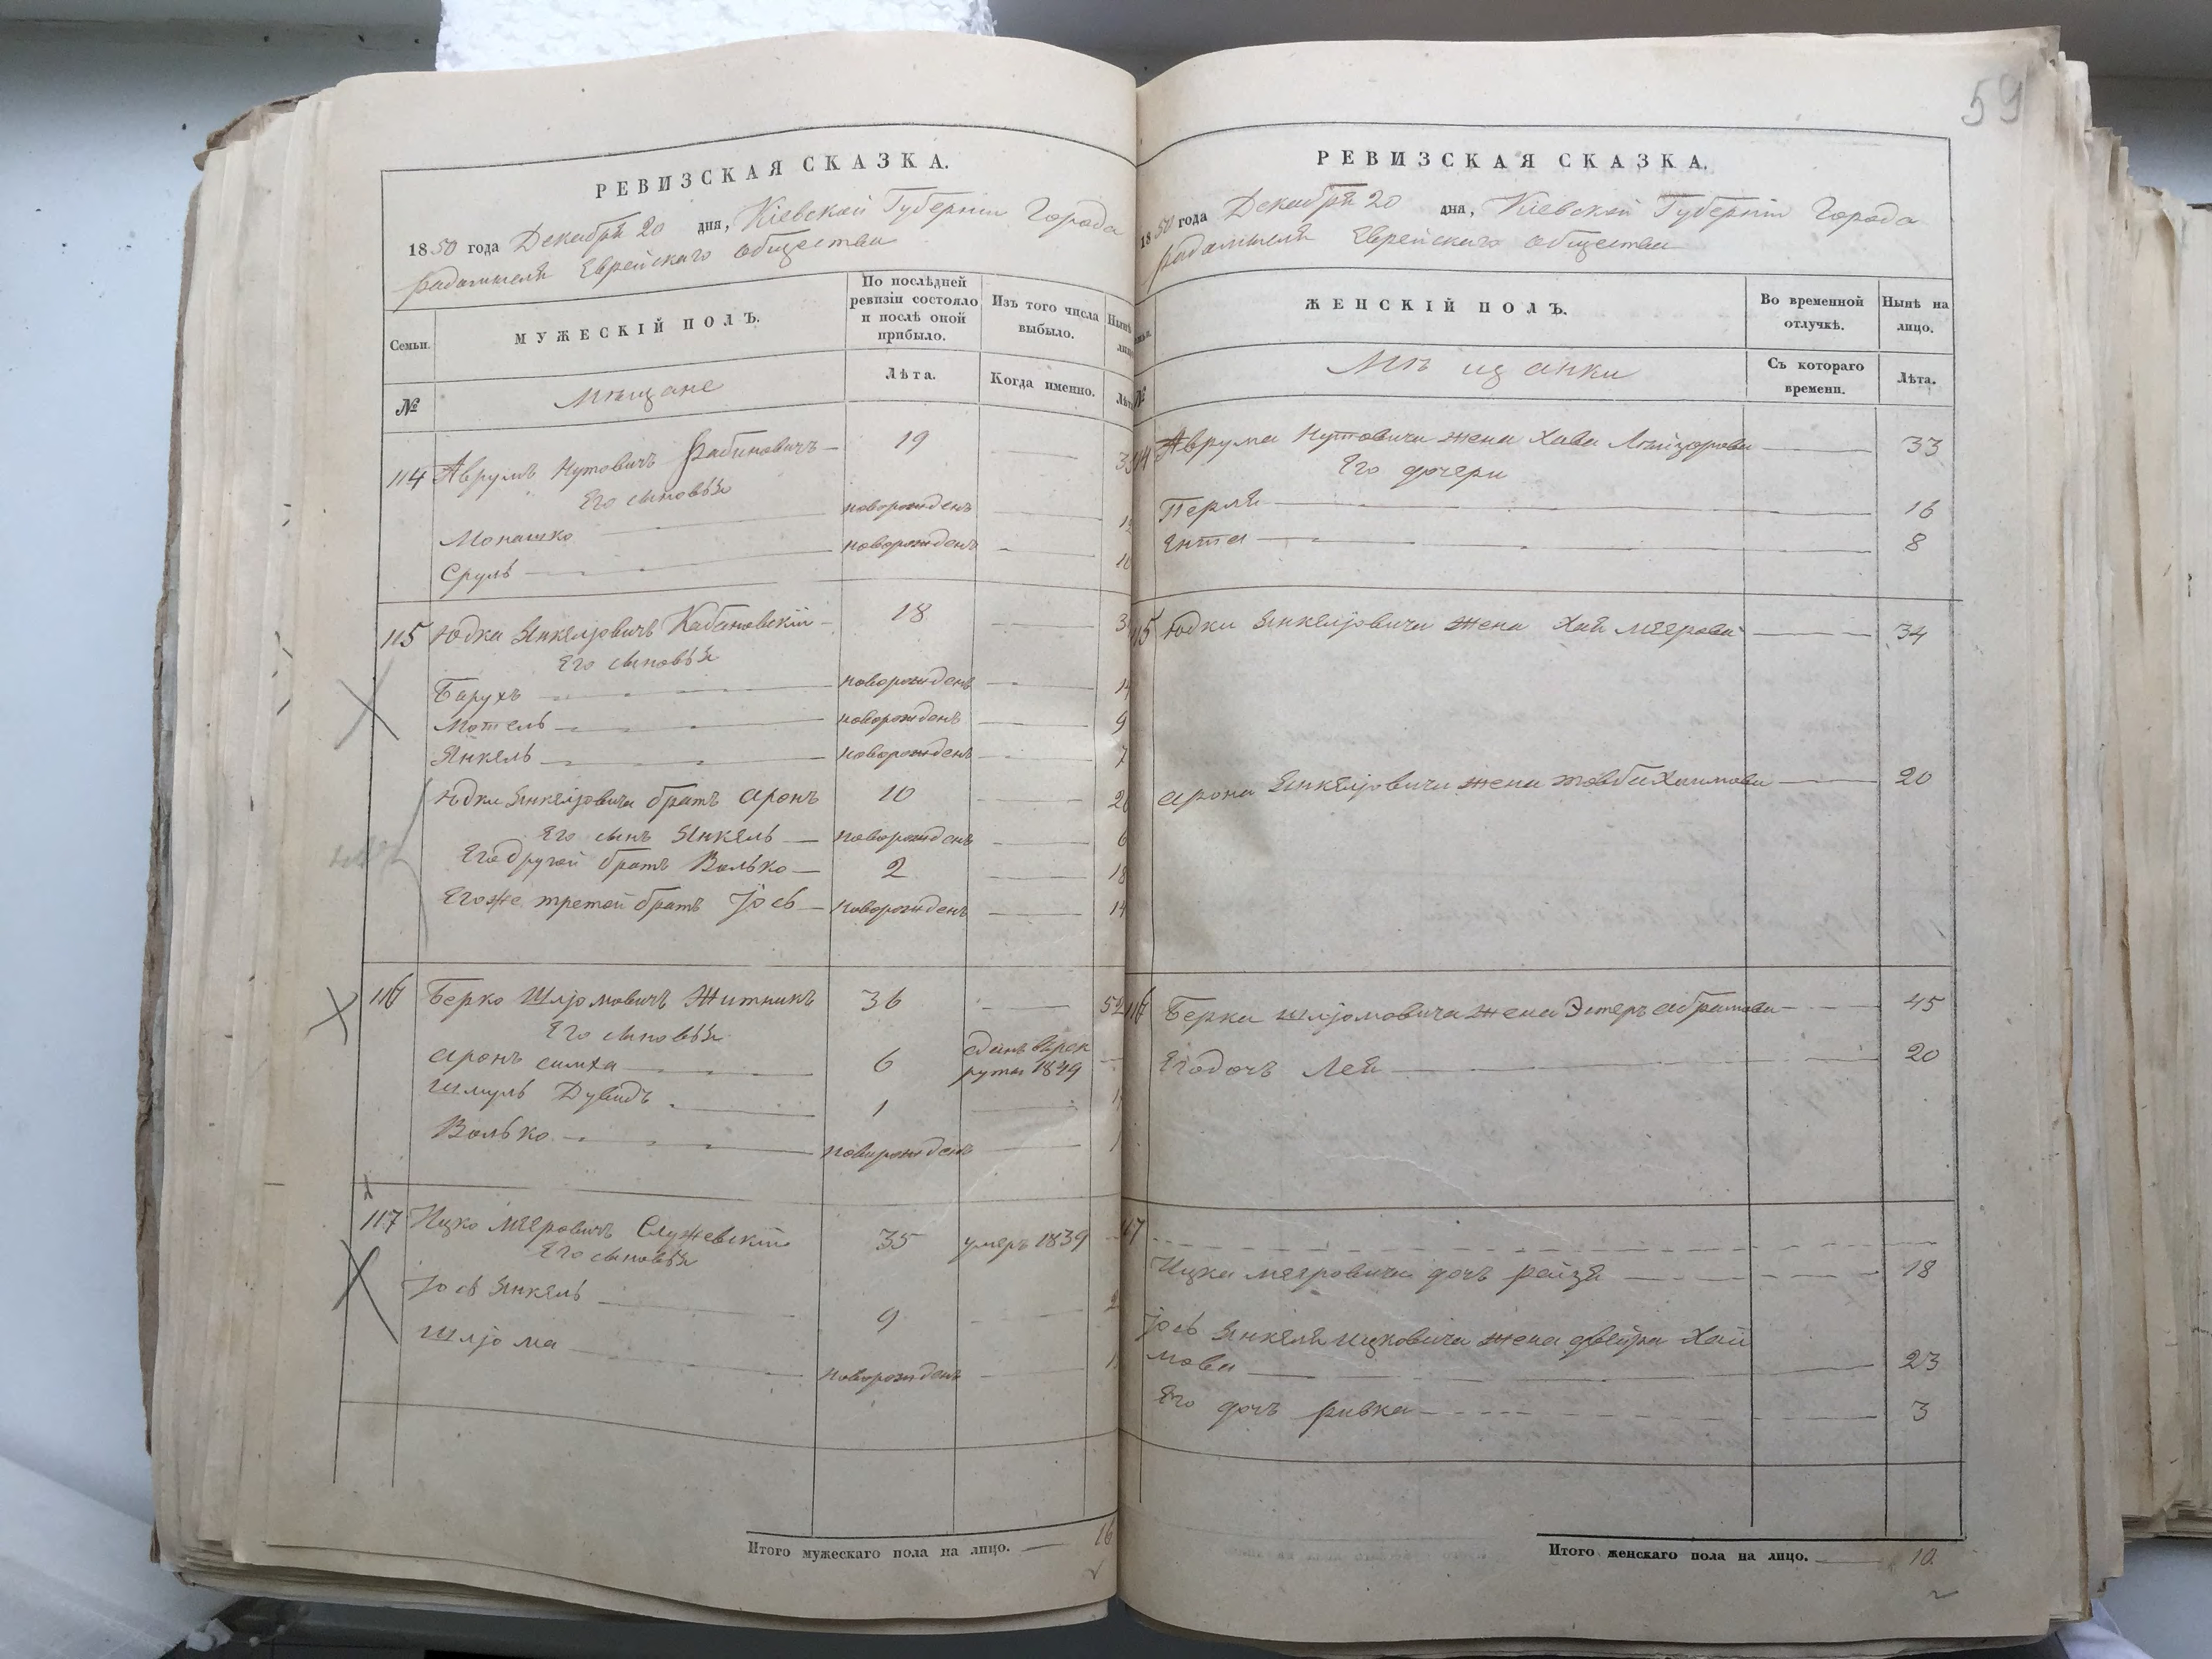 59
РЕВИЗСКАЯ СКАЗКА.
1850 года Декабря 20 дня, Кіевской Губерніи Города
Радомысля Еврейскаго общества
Семьи.
МУЖЕСКІЙ ПОЛЪ.
По послѣдней ревизіи состояло и послѣ оной прибыло.
Изъ того числа выбыло.
Нынѣ
№
Мѣщане
Лѣта.
Когда именно.
114 Аврумъ Нутовичъ Рабиновичъ 19
Его сыновья
Монашко новорожденъ
Сруль новорожденъ
115 Юдка Янкеліовичъ Кабановскій 18
Его сыновья
Барухъ новорожденъ
Мотель новорожденъ 9
Янкель новорожденъ 7
Юдки Янкеліовича братъ Аронъ 10
Его сынъ Янкель новорожденъ 6
Его другой братъ Волько 2 18
Его же третей братъ Іось новорожденъ 14
116 Берко Шліомовичъ Житникъ 36 52
Его сыновья
Аронъ Симха 6 сданъ в рек
руты 1849
Шмуль Дувидъ 1
Волько новорожденъ
117 Ицко Мееровичъ Служевскій 35 умеръ 1839
Его сыновья
Іось Янкель 9
Шліома новорожденъ
Итого мужескаго пола на лицо. 16
РЕВИЗСКАЯ СКАЗКА.
1850 года Декабря 20 дня, Кіевской Губерніи Города
Радомысля Еврейскаго общества
ЖЕНСКІЙ ПОЛЪ.
Во временной отлучкѣ.
Нынѣ на лицо.
№
Мѣщанки
Съ котораго времени.
Лѣта.
Аврума Нутовича жена Хава Лейзорова 33
Его дочери
Перля 16
Ента 8
115 Юдки Янкеліовича жена Хая Меерова 34
Арона Янкеліовича жена Товба Хаимова 20
116 Берки Шліомовича жена Эстеръ Абрамова 45
Его дочь Лея 20
117
Ицка Мееровича дочь Рейзя 18
Іось Янкеля Ицковича жена Двейра Хай
мова 23
Его дочь Ривка 3
Итого женскаго пола на лицо. 10.